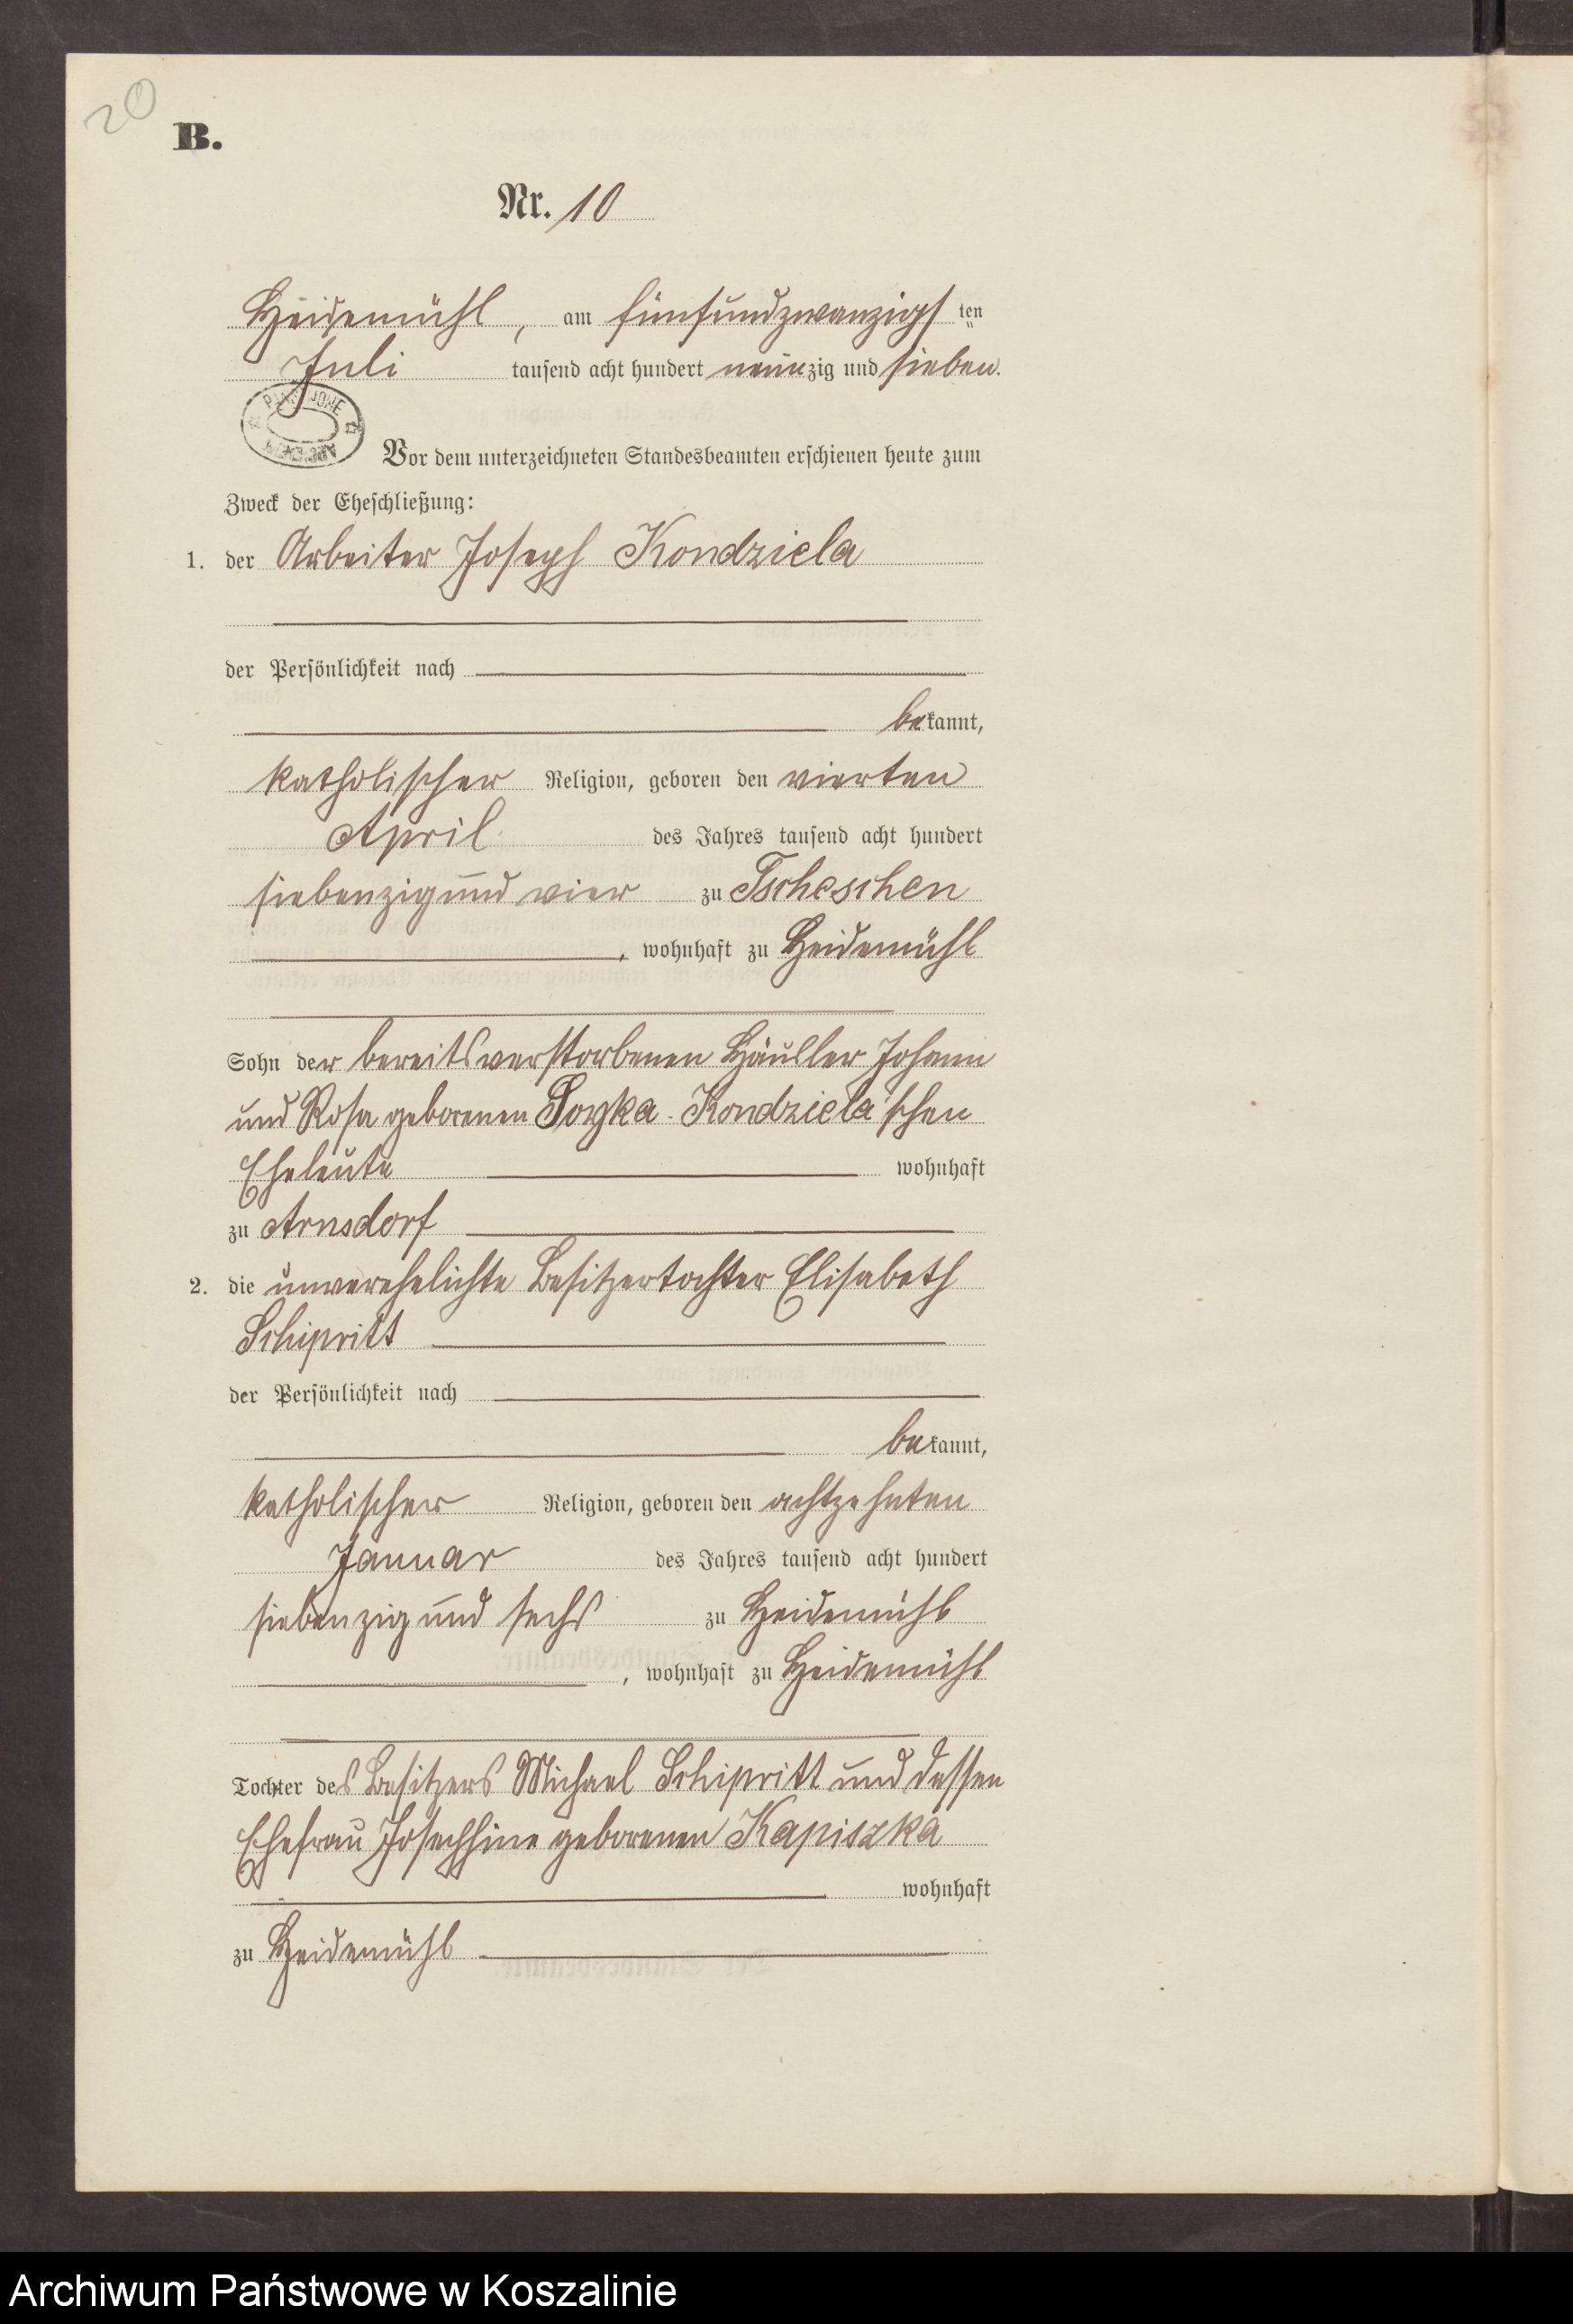 20
B.
Nr. 10
Heidemühl, am fünfundzwanzigsten
Juli tausend acht hundert neunzig und sieben.
Vor dem unterzeichneten Standesbeamten erschienen heute zum
Zweck der Eheschließung:
1. der Arbeiter Joseph Kondziela
der Persönlichkeit nach
bekannt,
katholischer Religion, geboren den vierten
April des Jahres tausend acht hundert
siebenzig und vier zu Tscheschen
, wohnhaft zu Heidemühl
Sohn der bereits verstorbenen Häusler Johann
und Rosa geborenen Soyka-Kondziela'schen
Eheleute wohnhaft
zu Arnsdorf
2. die unverehelichte Besitzertochter Elisabeth
Schipritt
der Persönlichkeit nach
bekannt,
katholischer Religion, geboren den achtzehnten
Januar des Jahres tausend acht hundert
siebenzig und sechs zu Heidemühl
, wohnhaft zu Heidemühl
Tochter des Besitzers Michael Schipritt und dessen
Ehefrau Josephine geborenen Kapiszka
wohnhaft
zu Heidemühl
Archiwum Państwowe w Koszalinie